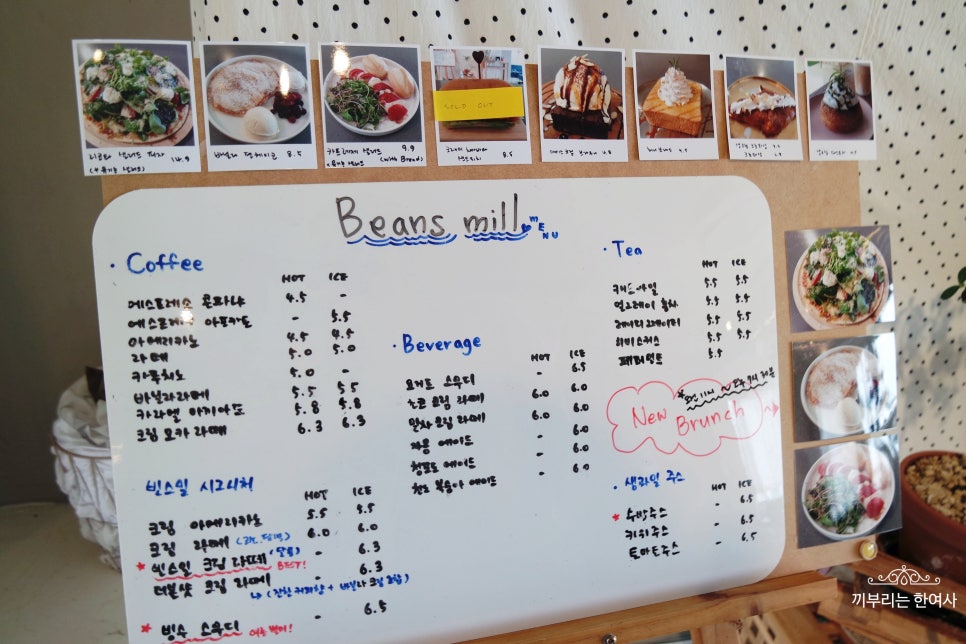 리코타 샐러드 피자 14.9
바닐라 팬케이크 8.5
카프레제 샐러드 9.9
(with Bread)
SOLD OUT
8.5
Beans mill
MENU
· Coffee
HOT ICE
에스프레소 콘파냐 4.5 -
에스프레소 아포가토 - 5.5
아메리카노 4.5 4.5
라떼 5.0 5.0
카푸치노 5.0 -
바닐라라떼 5.5 5.5
카라멜 마키아또 5.8 5.8
크림 모카 라떼 6.3 6.3
빈스밀 시그니처
HOT ICE
크림 아메리카노 5.5 5.5
크림 라떼 6.0 6.0
* 빈스밀 크림 라떼 - 6.3
BEST!
더블샷 크림 라떼 - 6.3
* 빙수 스무디 - 6.5
· Beverage
HOT ICE
요거트 스무디 - 6.5
초코 크림 라떼 6.0 6.0
말차 크림 라떼 6.0 6.0
자몽 에이드 - 6.0
청포도 에이드 - 6.0
천도 복숭아 에이드 - 6.0
· Tea
HOT ICE
캐모마일 5.5 5.5
얼그레이 홍차 5.5 5.5
5.5 5.5
히비스커스 5.5 5.5
페퍼민트 5.5
New Brunch
· 생과일 주스
HOT ICE
* 수박주스 - 6.5
키위주스 - 6.5
토마토주스 - 6.5
끼부리는 한여사